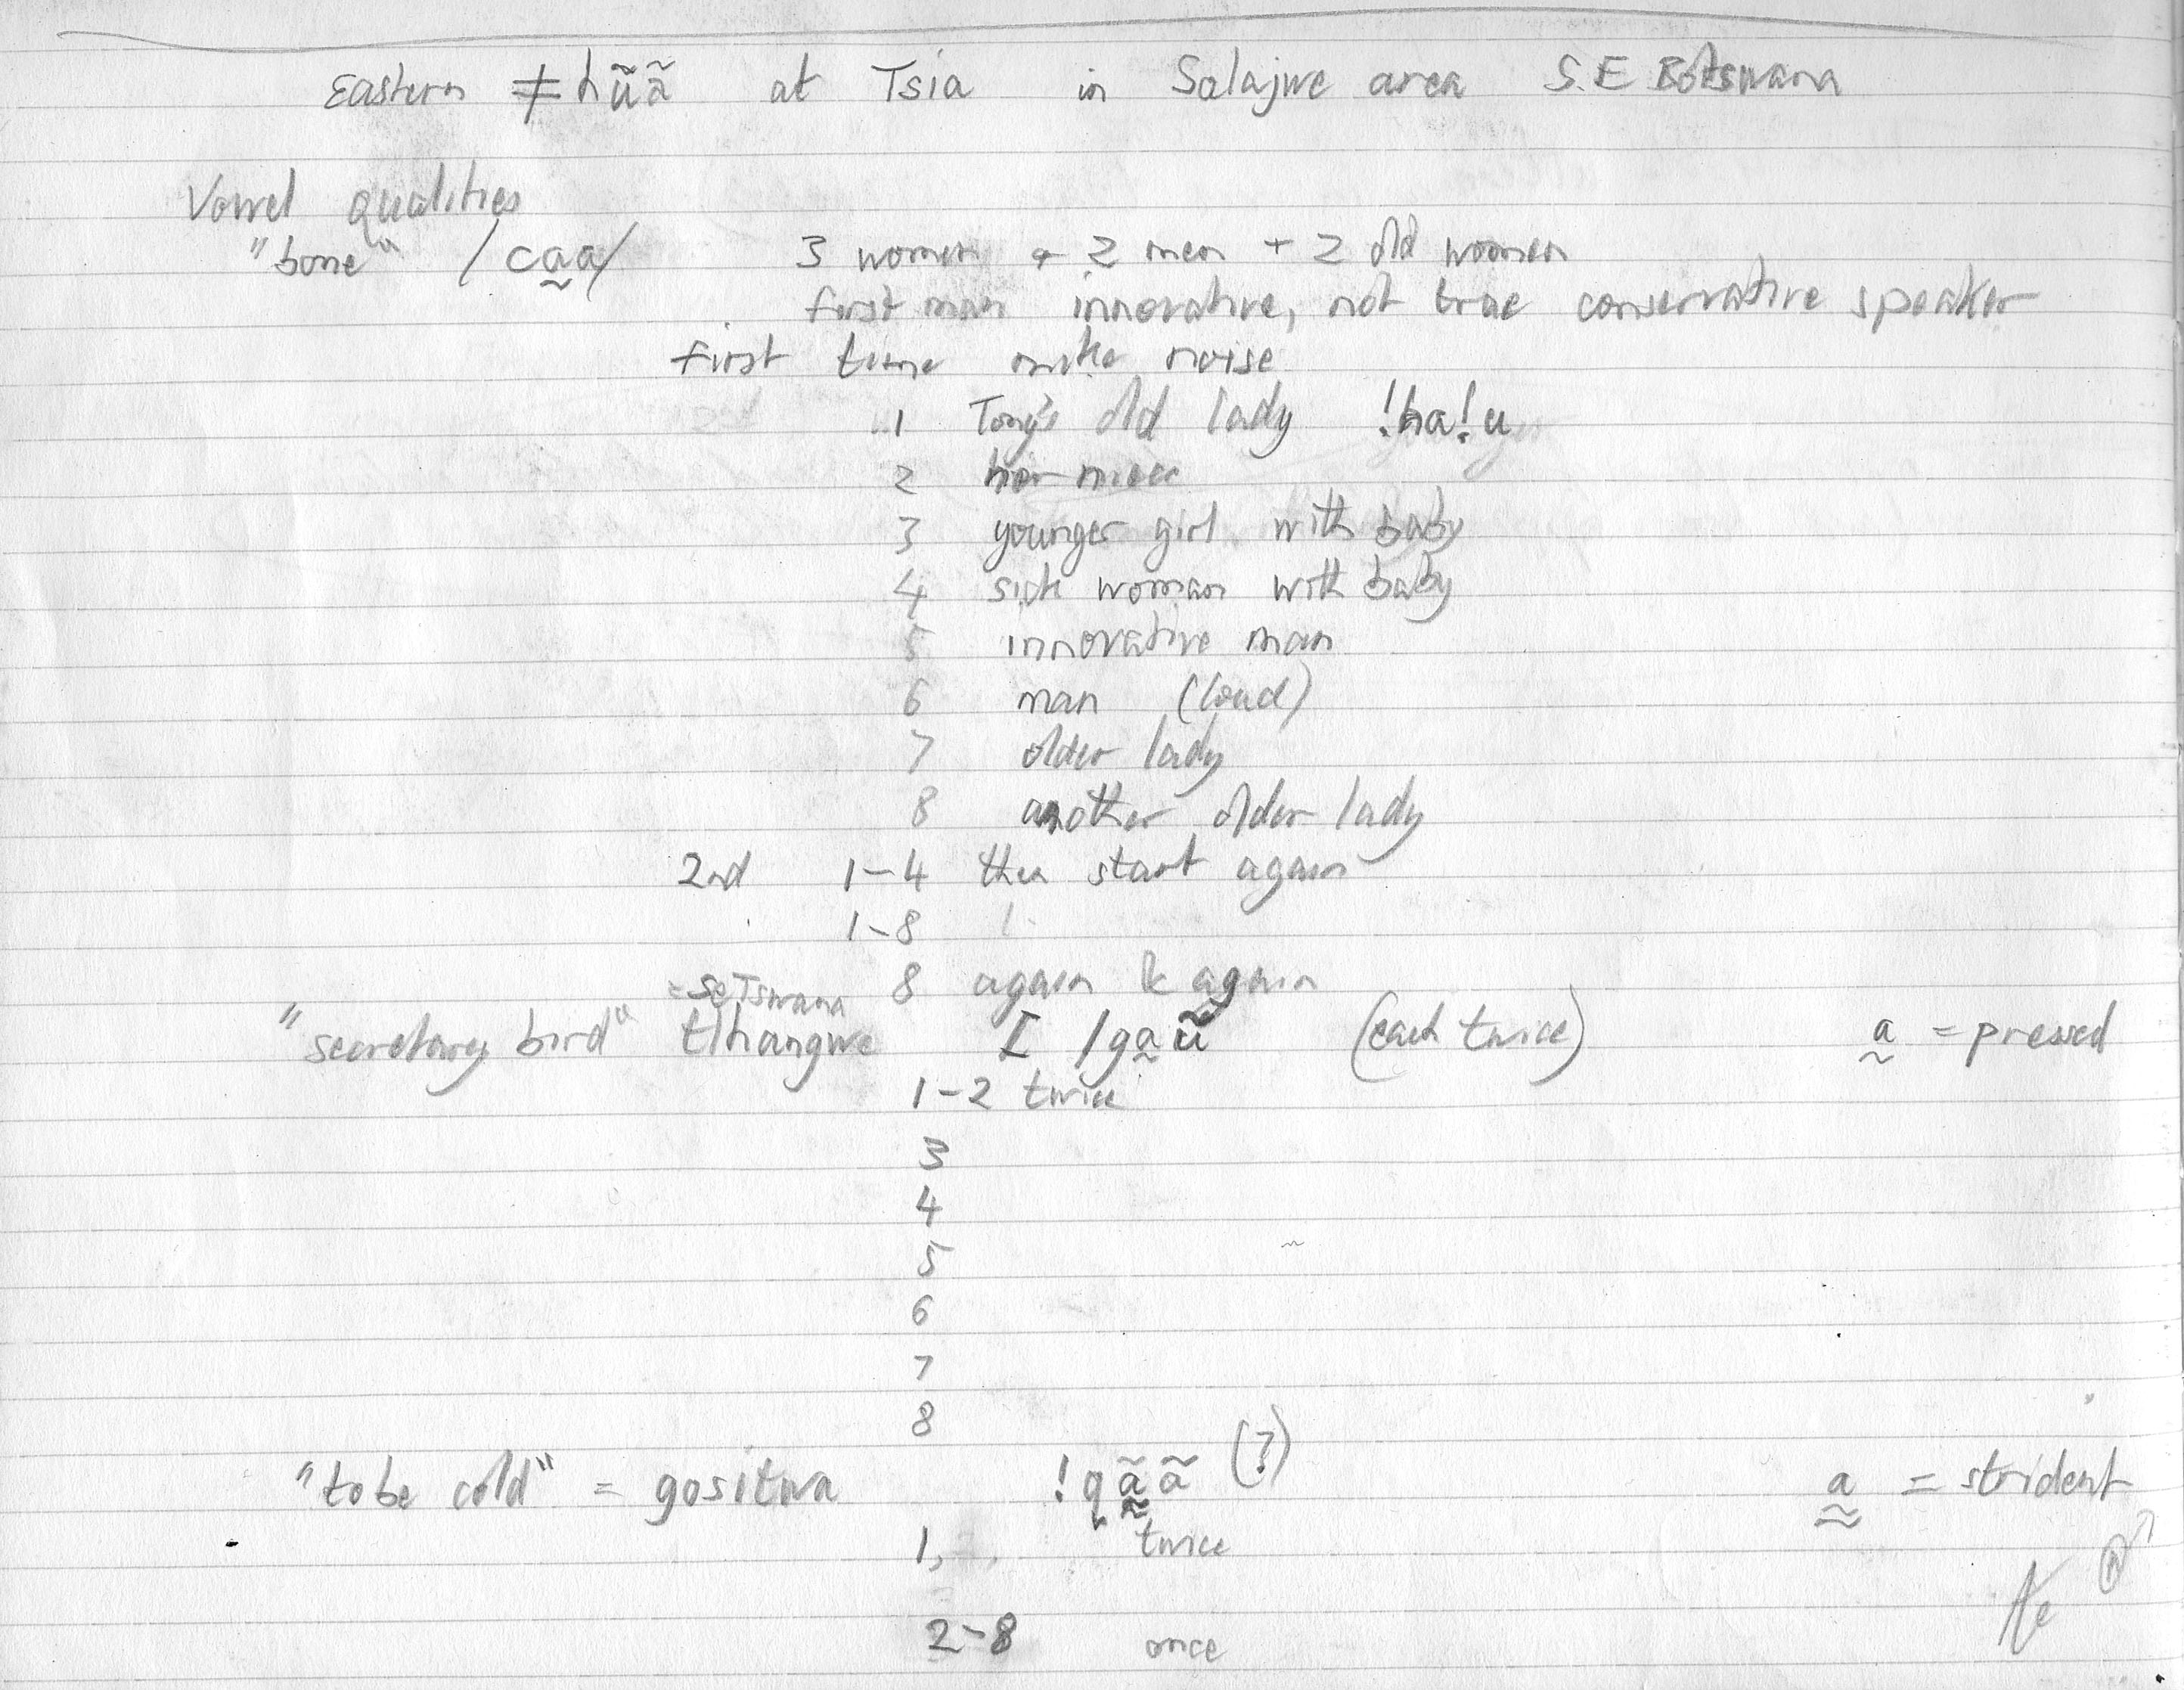 Eastern ǂhũã at Tsia in Salajwe area S.E Botswana
Vowel qualities
"bone" /ca̰a/ 3 women + 2 men + 2 old women
first man innovative, not true conservative speaker
first time mike noise
1 Tony's old lady !ha!u
2 her niece
3 younger girl with baby
4 sick woman with baby
5 innovative man
6 man (loud)
7 older lady
8 another older lady
2nd 1-4 then start again
1-8
8 again & again
= seTswana
"secretary bird" tlhangwe I /ga̰ũ (each twice) a̰ = pressed
1-2 twice
3
4
5
6
7
8
"to be cold" = gositwa !qã̰̰ã (?) a̰̰ = strident
1, twice
2-8 once